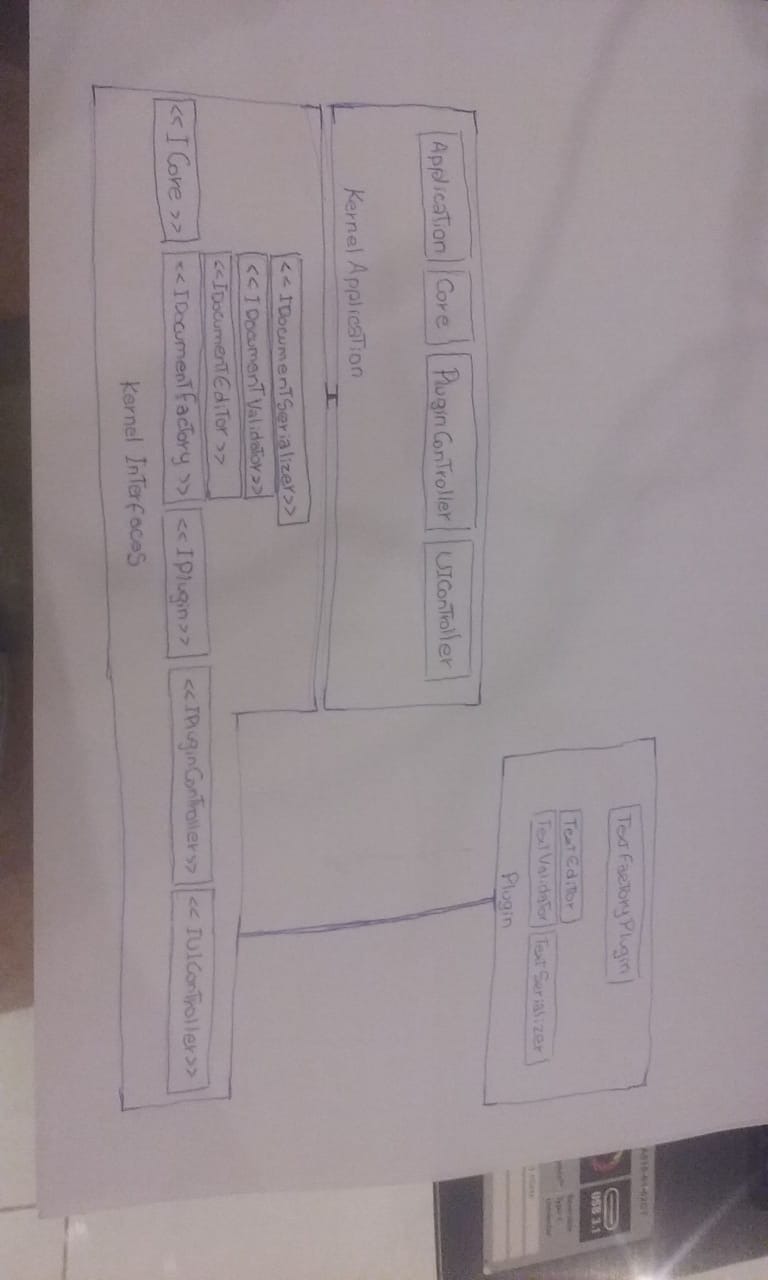 TextFactoryPlugin
TextEditor
TextValidator TextSerializer
Plugin
Application Core PluginController UIController
Kernel Application
<<IDocumentSerializer>>
<<IDocumentValidator>>
<<IDocumentEditor>>
<<ICore>> <<IDocumentFactory>> <<IPlugin>> <<IPluginController>> <<IUIController>>
Kernel Interfaces
USB 3.1
Reversible
Type-C
connector